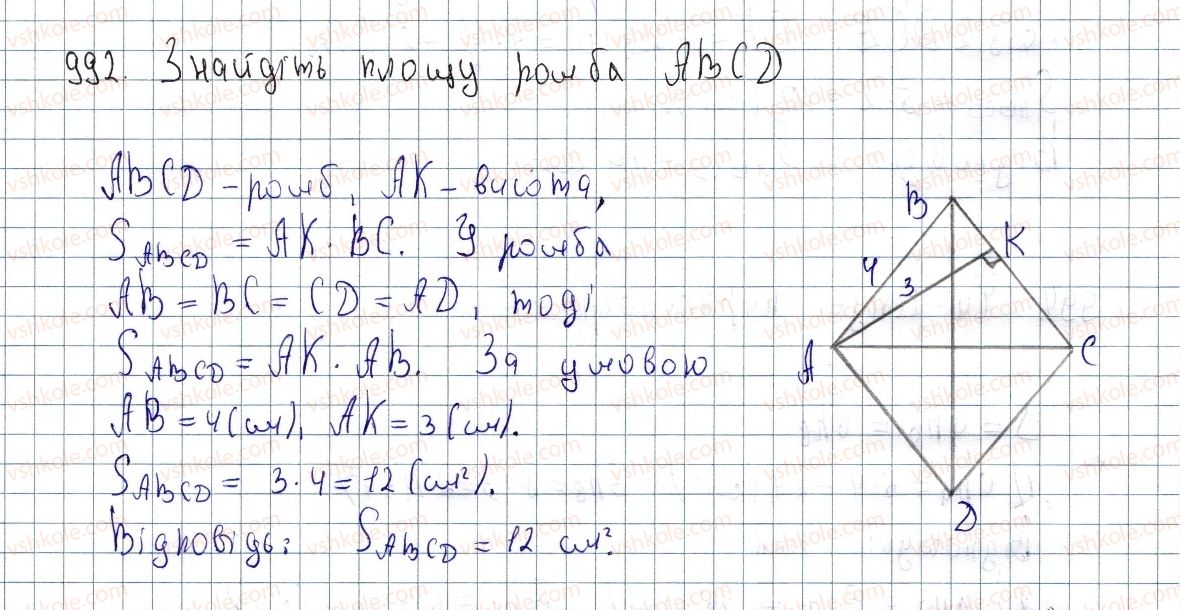 992. Знайдіть площу ромба ABCD
ABCD - ромб, AK - висота,
S ABCD = AK · BC. У ромба
AB = BC = CD = AD, тоді
S ABCD = AK · AB. За умовою
AB = 4 (см), AK = 3 (см).
S ABCD = 3 · 4 = 12 (см²).
Відповідь: S ABCD = 12 см².
B
K
4
3
A
C
D
vshkole.com